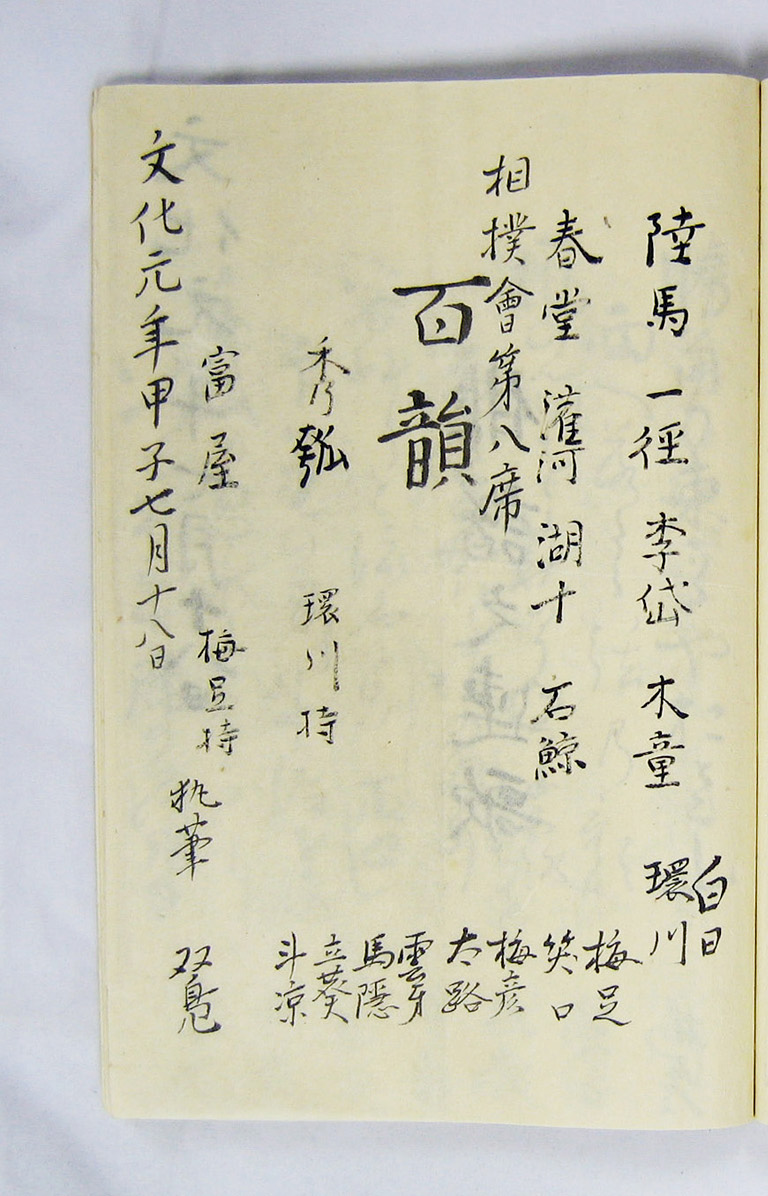 白日
陸馬 一徑 李岱 木童 環川
梅足
春堂 灌河 湖十 石鯨
笑口
相撲會第八席
梅彦
百韻
太路
雲芽
馬隠
秀瓠 環川持
立葵
斗涼
富屋 梅足持
執筆 双鳬
文化元年甲子七月十八日